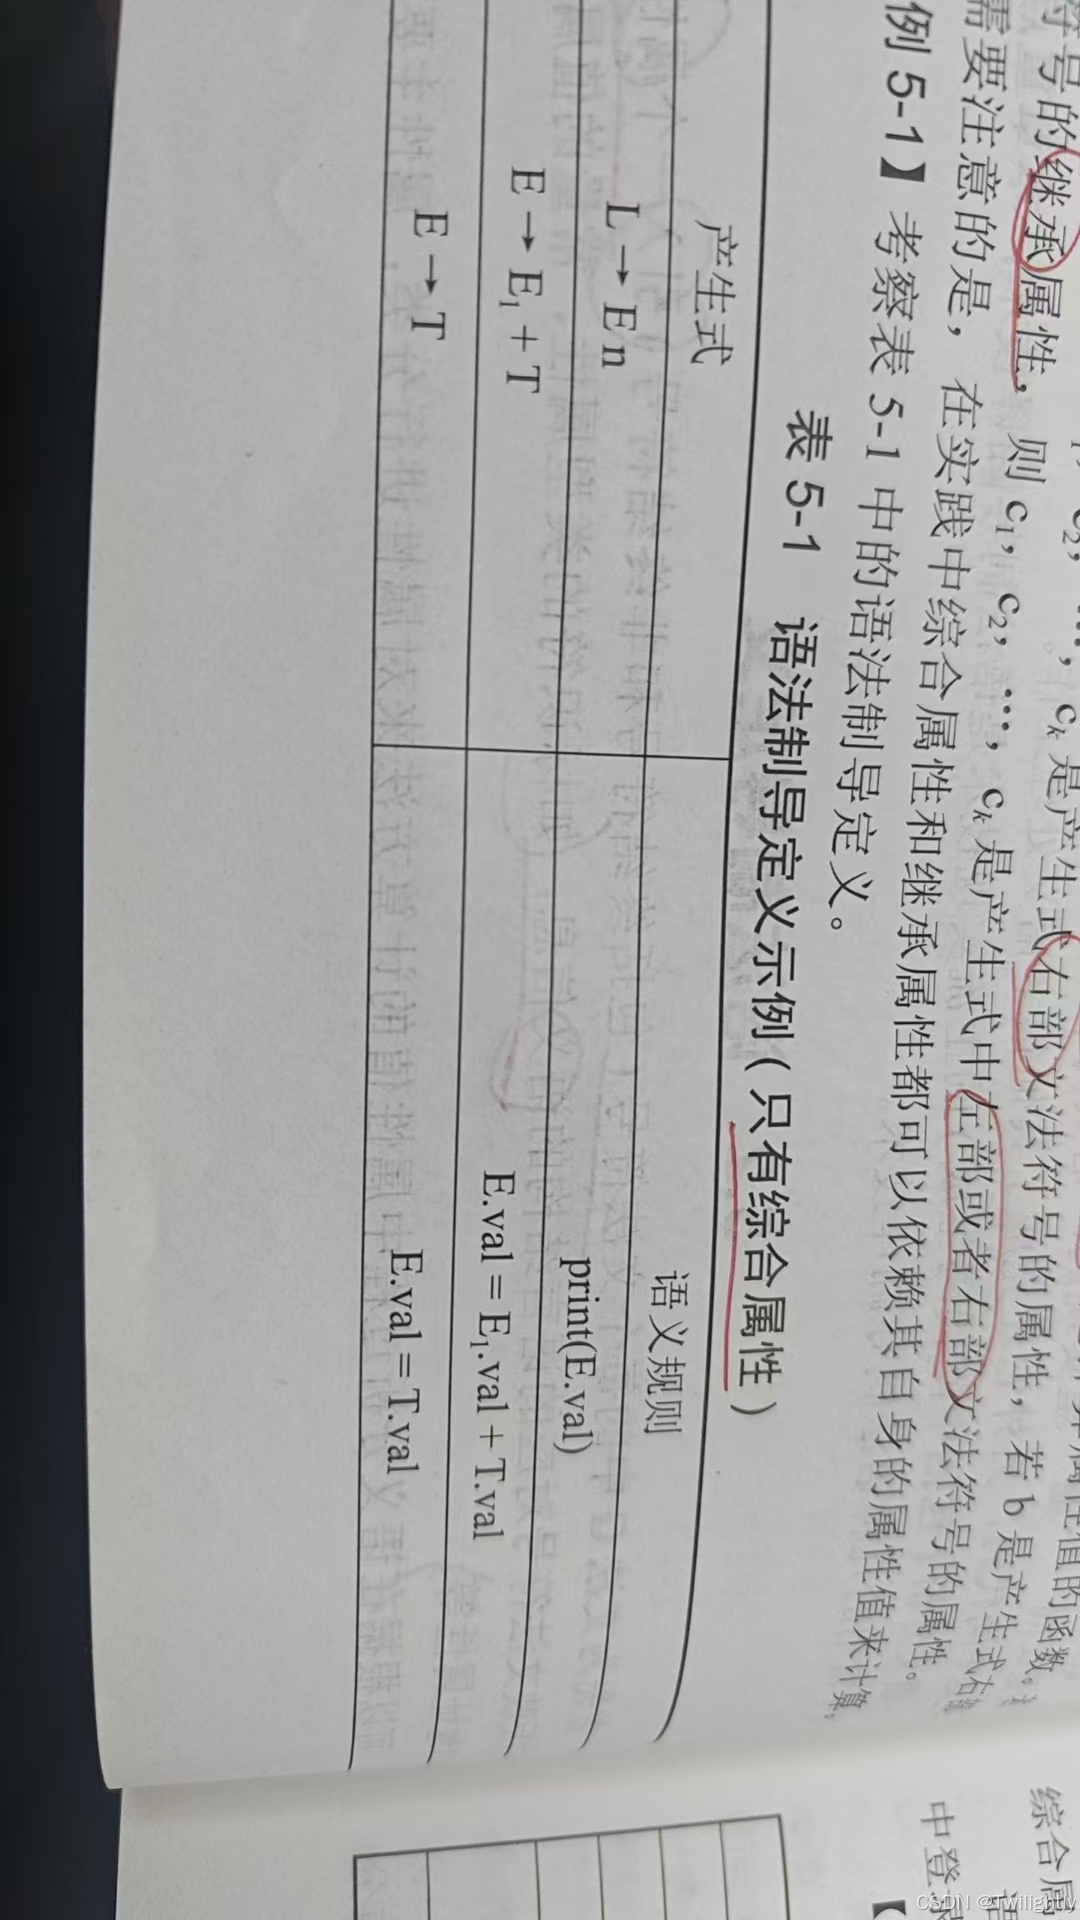 符号的继承属性, 则 c₁, c₂, …, cₖ 是产生式中左部或者右部文法符号的属性。
需要注意的是, 在实践中综合属性和继承属性都可以依赖其自身的属性值来计算。
例 5-1】 考察表 5-1 中的语法制导定义。
表 5-1 语法制导定义示例(只有综合属性)
产生式 语义规则
L → E n print(E.val)
E → E₁ + T E.val = E₁.val + T.val
E → T E.val = T.val
综合属
中登录
CSDN @Twilightly